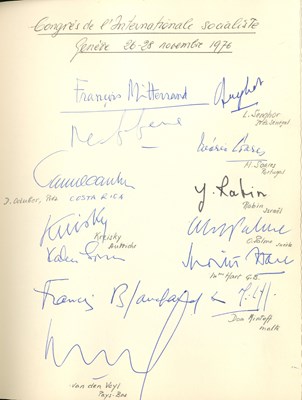 Congrès de l'Internationale socialiste
Genève 26-28 novembre 1976
François Mitterrand
Senghor
L. Senghor
Sénégal
Mário Soares
M. Soares
Portugal
D. Oduber, COSTA RICA
Y. Rabin
Rabin
Israël
Kreisky
Kreisky
Autriche
Olof Palme
O. Palme Suède
Kalevi Sorsa
Judith Hart
Mme Hart G.B.
Francis Blanchard
Dom Mintoff
malte
van den Uyl
Pays-Bas